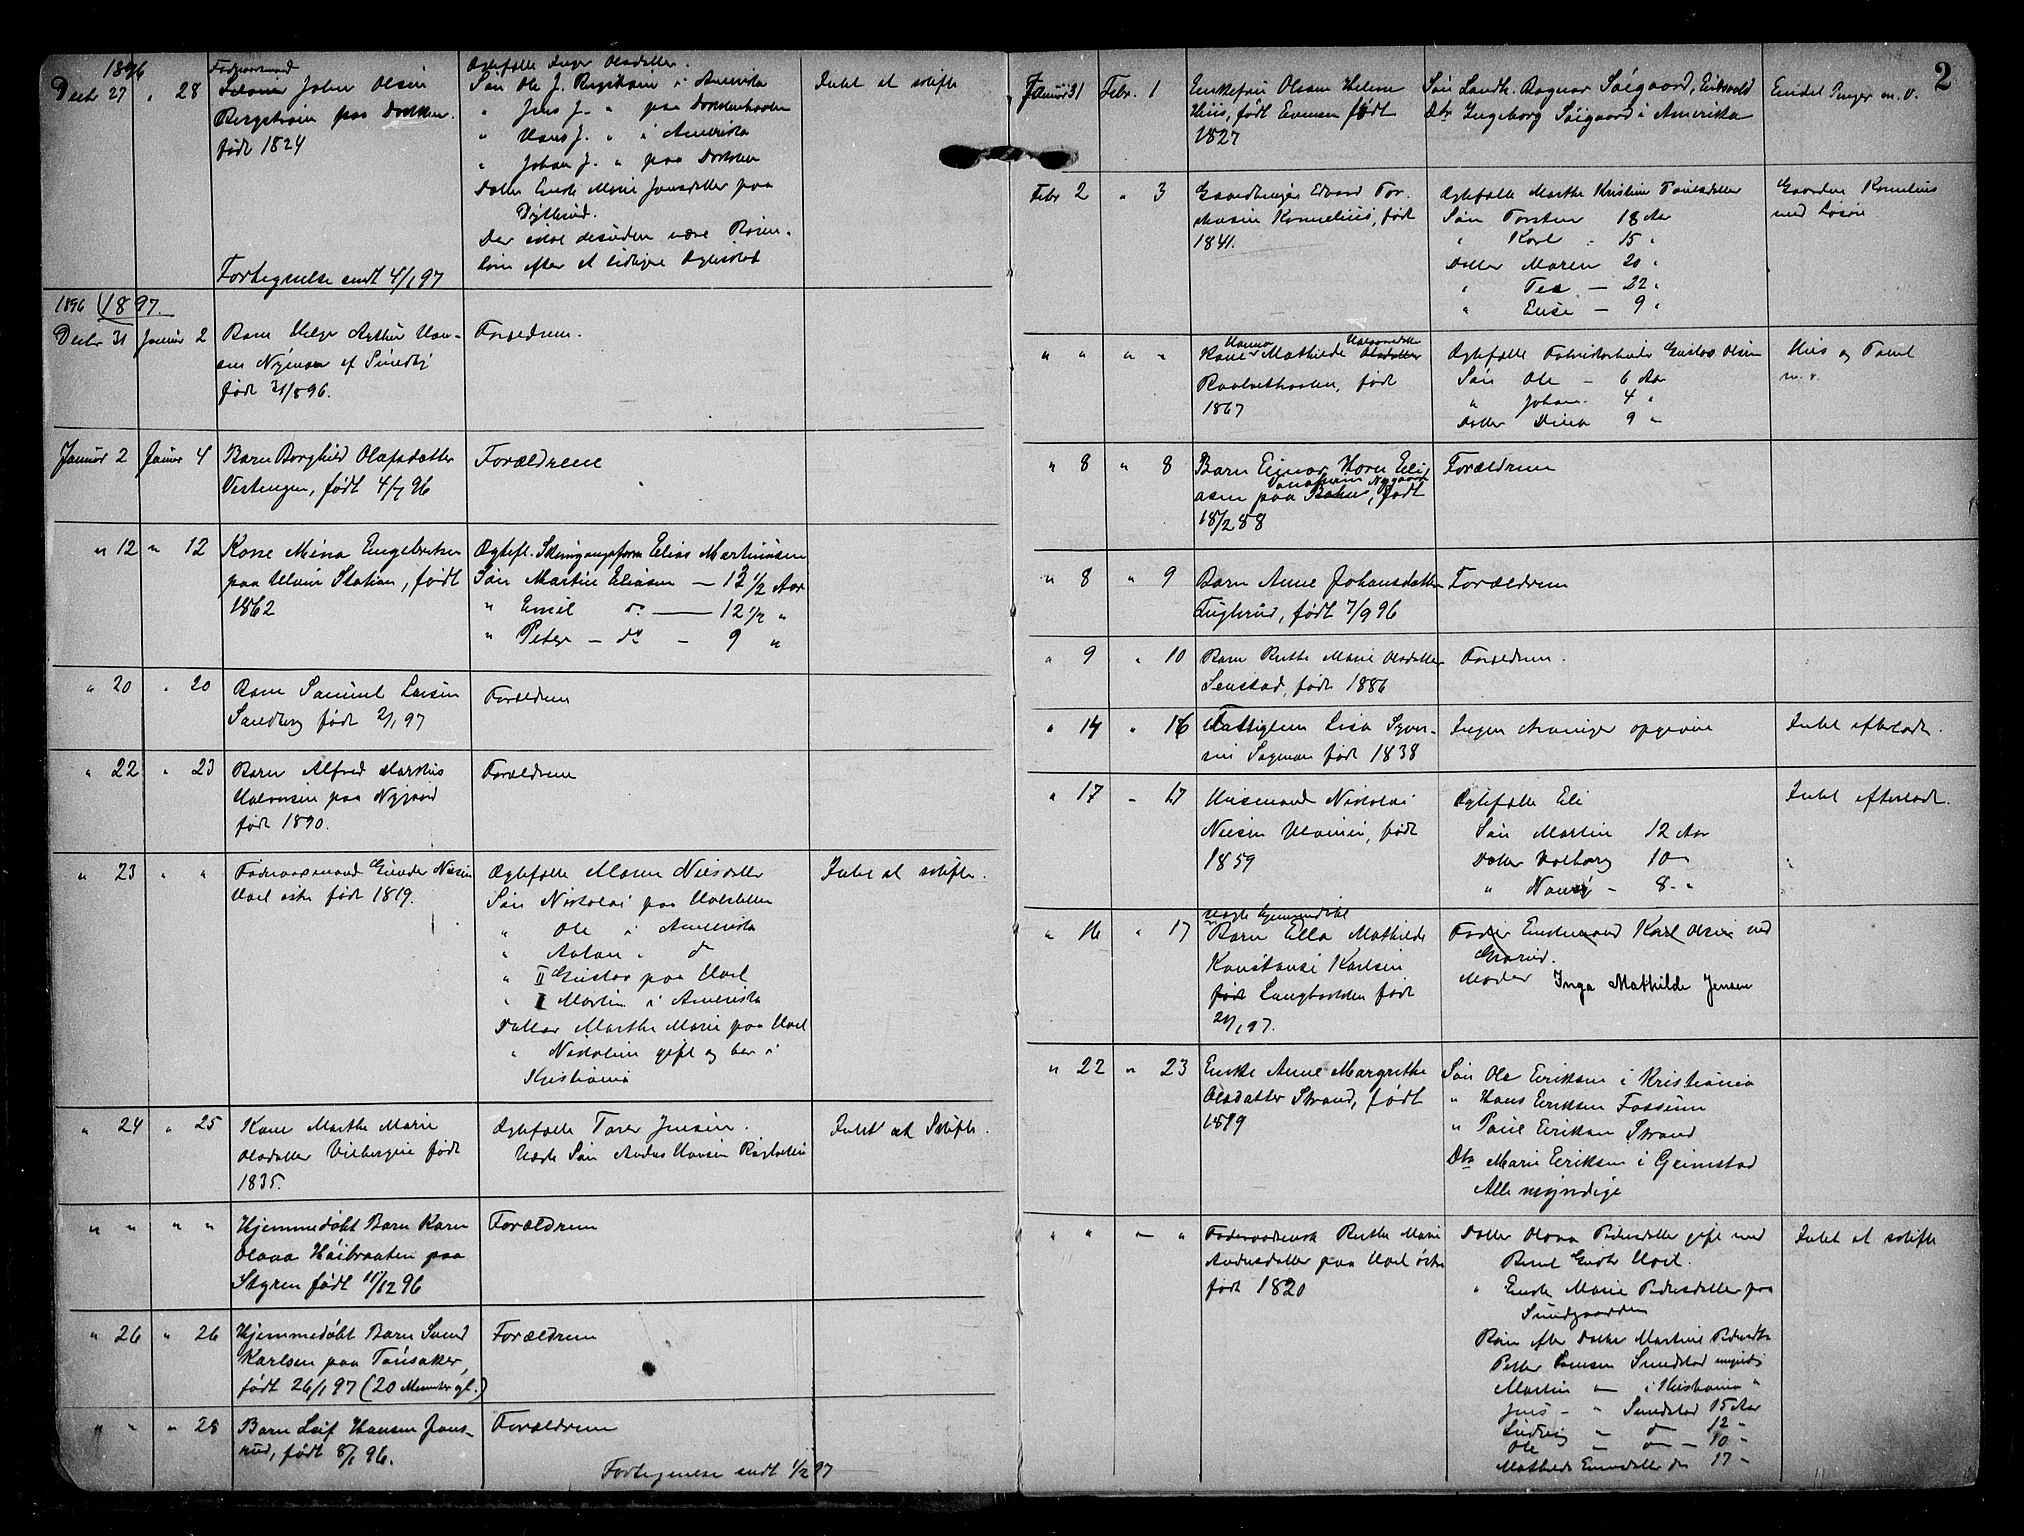 1896
Decbr 27 " 28 Føderaadsmand John Olsen
Bergstrøm paa
født 1824
Ægtefælle Inger Olsdatter.
Søn Ole J. Bergstrøm i Amerika
" Jens J. " paa
" Hans J. " i Amerika
" Johan J. " paa
Datter Enke Marie Jonsdatter paa
Der skal desuden være
efter et tidligere Ægteskab
Intet at skifte
Fortegnelse sendt 4/1 97
1896 1897.
Decbr 31 Januar 2 Barn Helge Arthur Han-
sen Nyman af Sundby
født 31/8 96.
Forældrene.
Januar 2 Januar 4 Barn Borghild Olafsdatter
Vestengen, født 4/7 96
Forældrene
" 12 " 12 Kone Mina Engebretsen
paa Ulvin Station, født
1862
Ægtef. Elias Martinusen
Søn Martin Eliasen — 12 1/2 Aar
" Emil do — 12 1/2 "
" Peter — do - 9 "
" 20 " 20 Barn Samuel Larsen
Sandberg født 2/1 97
Forældrene
" 22 " 23 Barn Alfred Markus
Halvorsen paa Nygaard
født 1890.
Forældrene
" 23 " " Føderaadsmand Gunder Nilsen
Hoel født 1819.
Ægtefælle Maren Nilsdatter
Søn Nikolai paa
" Ole i Amerika
" Anton " d
" II Gustav paa Hoel
" I Martin i Amerika
Datter Marthe Marie paa Hoel
" Nikoline gift og bor i
Kristiania
Intet at skifte.
" 24 " 25 Kone Marthe Marie
Olsdatter født
1835.
Ægtefælle Tarer Jensen.
Søn Anders Hansen
Intet at Skifte.
" " " " Hjemmedøbt Barn Karn
Olava Høibraaten paa
Styren født 11/12 96
Forældrene
" 26 " 26 Hjemmedøbt Barn Svend
Karlsen paa Tønsaker,
født 26/1 97 (20 Minuter gl.)
Forældrene
" " " 28 Barn Leif Hansen Jøns-
rud, født 8/1 96.
Forældrene
Fortegnelse sendt 1/2 97
2
Januar 31 Febr. 1 Enkefru Olsen Helene
Hiis, født Evensen født
1827
Søn Landh. Ragnar Søigaard, Eidsvold
Dtr Ingeborg Søigaard i Amerika
Endel Penger m. v.
Febr 2 " 3 Gaardbruger Edvard Tor-
stensen Kornelius, født
1841.
Ægtefælle Marthe Kristine Paulsdatter
Søn Torsten 18 Aar
" Karl - 15 "
Datter Maren 20 "
" Tea — 22 "
" Elise — 9 "
Gaarden Kornelius
med Løsøre
" " " " Kone Hanna Mathilde Halvorsdatter Olsdatter
født
1867
Ægtefælle Fabrikarbeider Gustav Olsen
Søn Ole — 6 Aar
" Johan. 4 "
Datter Dina 9 "
Hus og Tomt
m. v.
" 8 " 8 Barn Einar Horn Eli-
asen paa Bøhn, født
18/2 88
Forældrene
" 8 " 9 Barn Anne Johansdatter
Fuglerud, født 7/9 96
Forældrene
" 9 " 10 Barn Ruthe Marie Olsdatter
Senstad, født 1886
Forældrene.
" 14 " 16 Fattiglem Lisa Syver-
sen Sagmoen født 1838
Ingen Arvinger opgivne
Intet efterladt.
" 17 " 17 Husmand Nikolai
Nilsen født
1859
Ægtefælle Eli
Søn Martin 12 Aar
Datter Valborg 10 "
" Nansy - 8 - "
Intet efterladt.
" 16 " 17 uægte hjemmedøbt
Barn Ella Mathilde
Konstanse Karlsen
født Langbakken født
29/1 97.
Fader Enkemand Karl Olsen ved
Grarud.
Moder Inga Mathilde Jensen
" 22 " 23 Enke Anne Margrethe
Olsdatter Strand, født
1819
Søn Ole Eriksen i Kristiania
" Hans Eriksen Fossum
" Paul Eriksen Strand
Dtr Marie Eriksen i Grimstad
Alle myndige
" " — " Føderaadsenke Ruthe Marie
Andersdatter paa Hoel østre
født 1820
Datter Olava Pedersdatter gift med
Hoel.
" Enke Marie Pedersdatter paa
Sundgaarden
Børn efter Datter Martine
Petter Sundstad myndig
Martin — i Kristiania "
Jens - " Sundstad 15 Aar
Ludvig " d 12 "
Ole " do — 10 "
Mathilde do 17 "
Intet at skifte